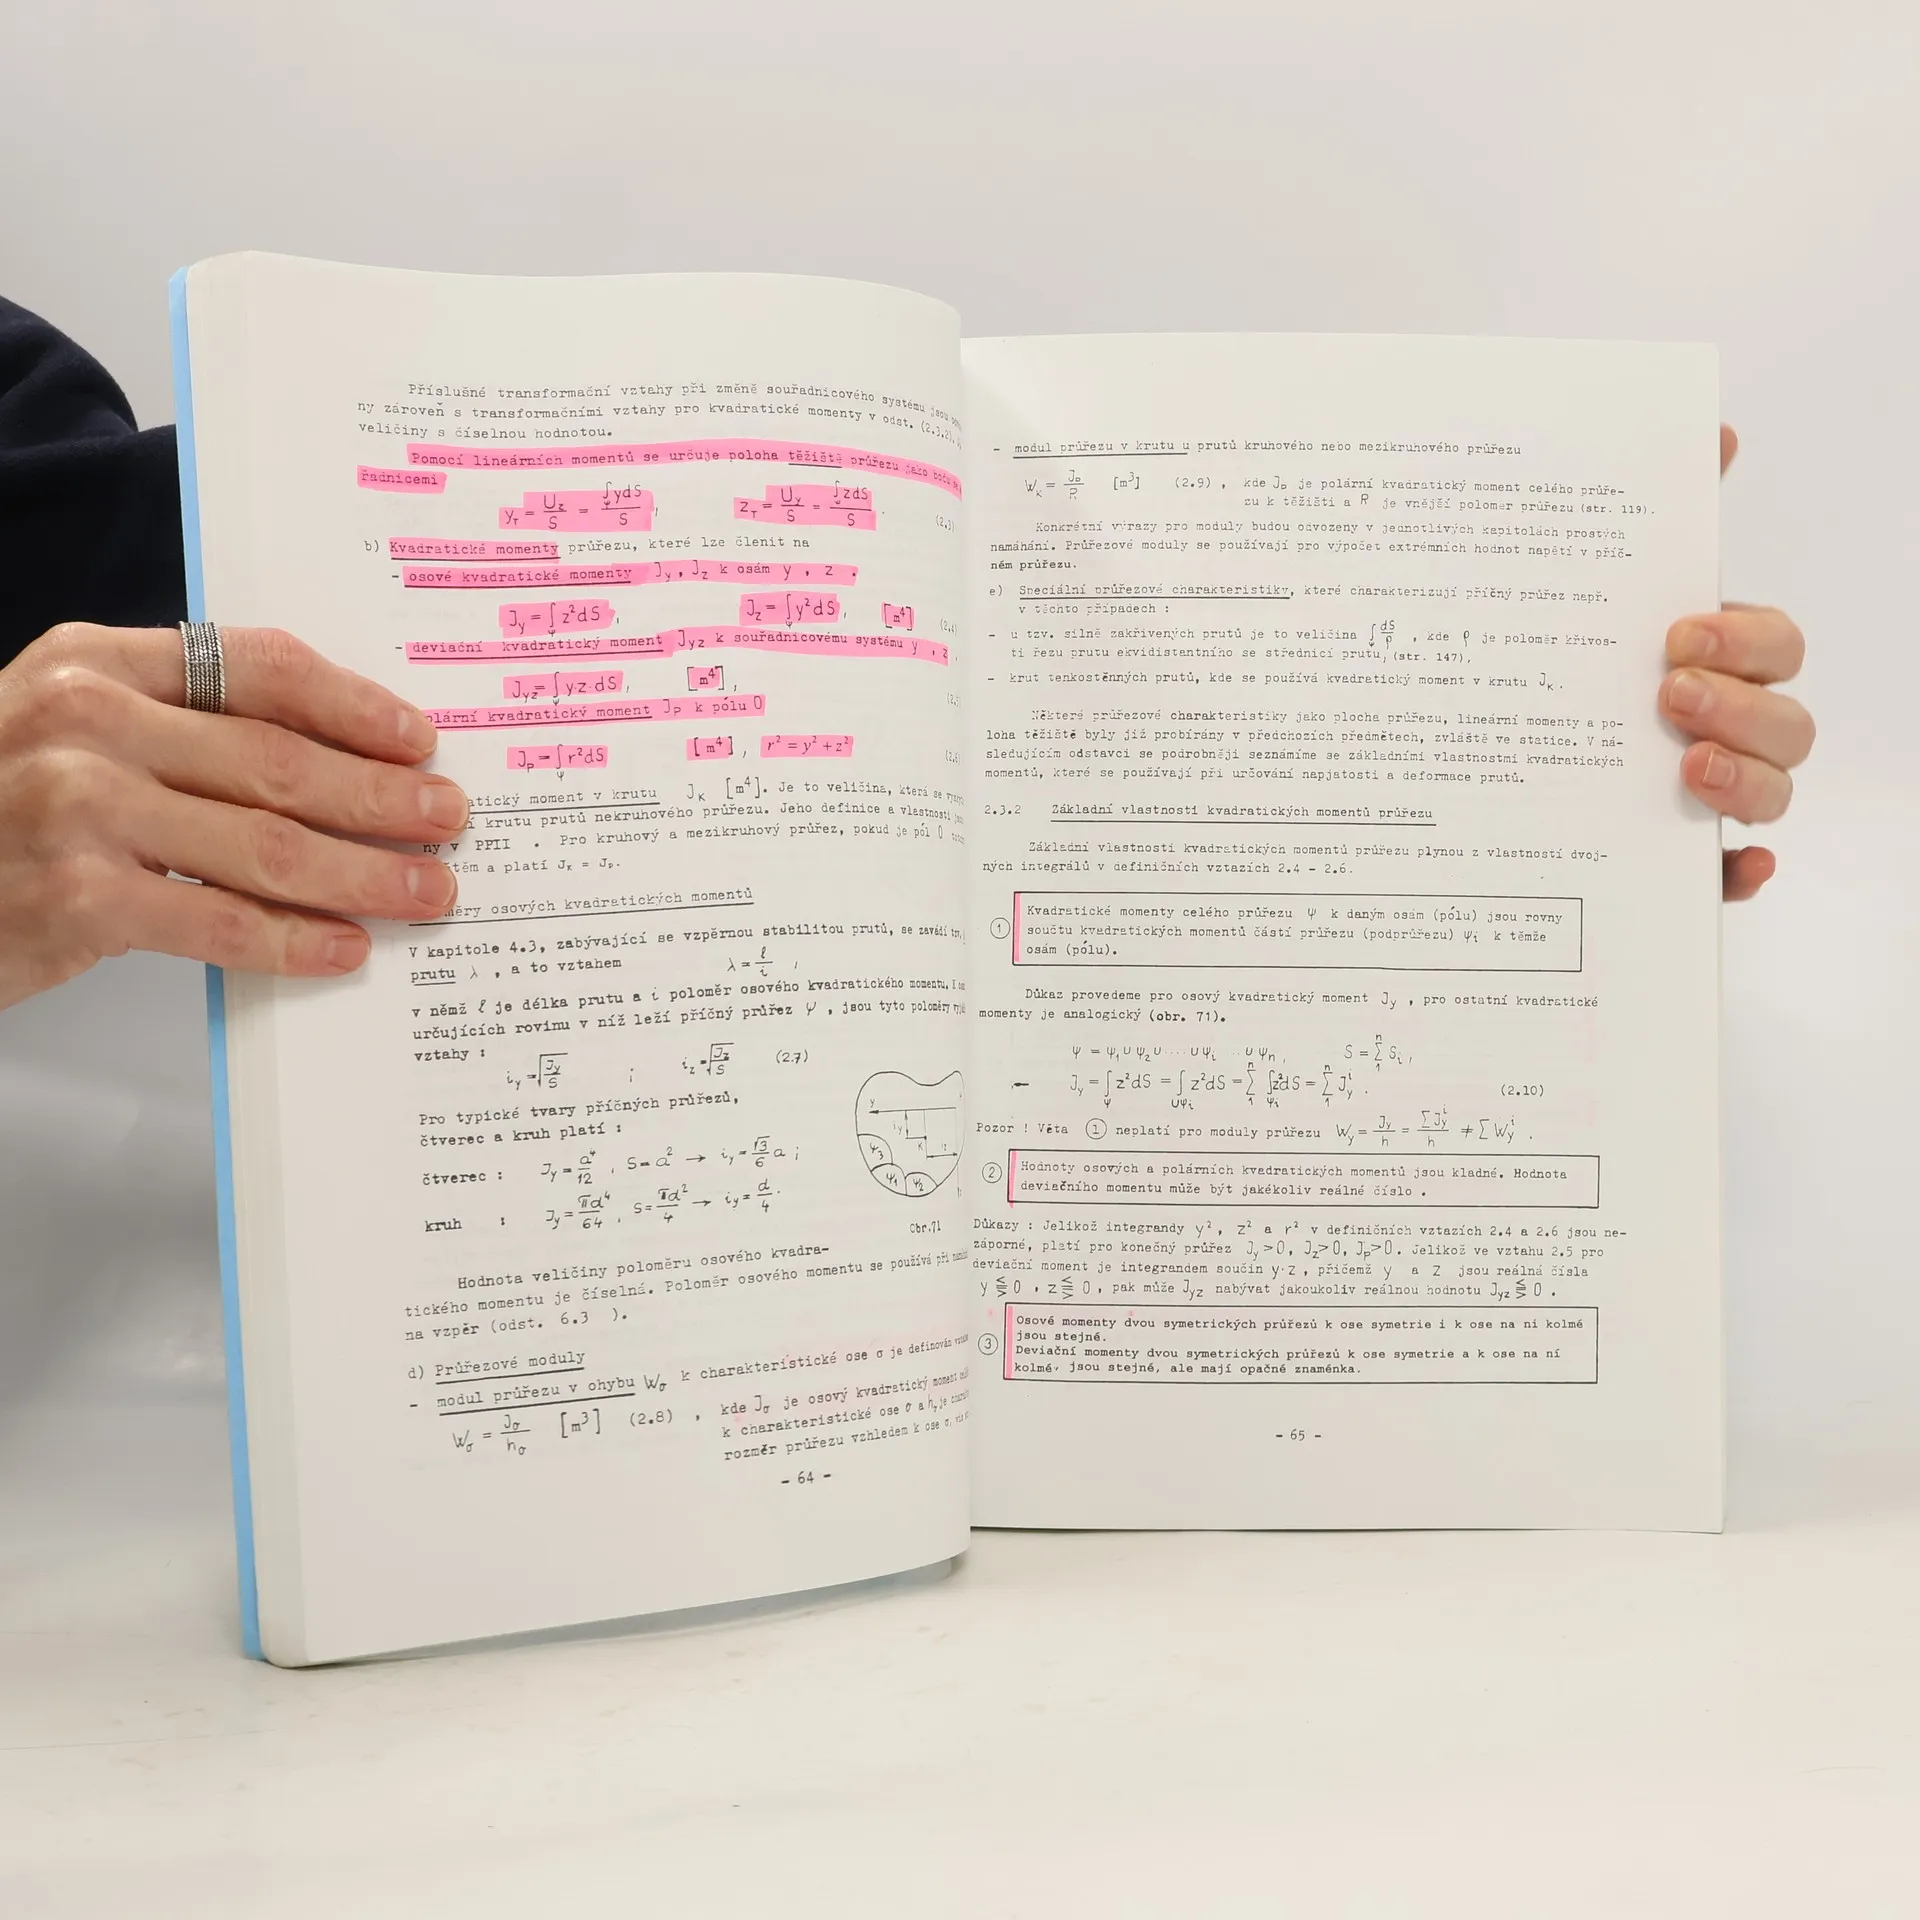 Příslušné transformační vztahy při změně souřadnicového systému jsou
ny zároveň s transformačními vztahy pro kvadratické momenty v odst. (2.3.2),
veličiny s číselnou hodnotou.
Pomocí lineárních momentů se určuje poloha těžiště průřezu jako
řadnicemi
y_T = U_z/S = ∫ydS/S , z_T = U_y/S = ∫zdS/S . (2.3)
b) Kvadratické momenty průřezu, které lze členit na
- osové kvadratické momenty J_y , J_z k osám y , z .
J_y = ∫_ψ z²dS , J_z = ∫_ψ y²dS , [m⁴] (2.4)
- deviační kvadratický moment J_yz k souřadnicovému systému y , z .
J_yz = ∫_ψ y·z·dS , [m⁴] , (2.5)
polární kvadratický moment J_P k pólu 0
J_P = ∫_ψ r²dS [m⁴] , r² = y² + z² (2.6)
atický moment v krutu J_K [m⁴]. Je to veličina, která se
í krutu prutů nekruhového průřezu. Jeho definice a vlastnosti
ny v PPII . Pro kruhový a mezikruhový průřez, pokud je pól 0
těm a platí J_K = J_P.
měry osových kvadratických momentů
V kapitole 4.3, zabývající se vzpěrnou stabilitou prutů, se zavádí
prutu λ , a to vztahem λ = ℓ/i ,
v němž ℓ je délka prutu a i poloměr osového kvadratického momentu.
určujících rovinu v níž leží příčný průřez ψ , jsou tyto poloměry
vztahy :
i_y = √(J_y/S) ; i_z = √(J_z/S) (2.7)
Pro typické tvary příčných průřezů,
čtverec a kruh platí :
čtverec : J_y = a⁴/12 , S = a² → i_y = √3/6 a ;
kruh : J_y = πd⁴/64 , S = πd²/4 → i_y = d/4 .
y
i_y
K
ψ₃
ψ₁
ψ₂
Obr.71
Hodnota veličiny poloměru osového kvadra-
tického momentu je číselná. Poloměr osového momentu se používá při
na vzpěr (odst. 6.3 ).
d) Průřezové moduly
- modul průřezu v ohybu W_σ k charakteristické ose σ je definován
W_σ = J_σ/h_σ [m³] (2.8) , kde J_σ je osový kvadratický moment
k charakteristické ose σ a h_σ je
rozměr průřezu vzhledem k ose σ,
- 64 -
- modul průřezu v krutu u prutů kruhového nebo mezikruhového průřezu
W_K = J_P/R [m³] (2.9) , kde J_P je polární kvadratický moment celého průře-
zu k těžišti a R je vnější poloměr průřezu (str. 119).
Konkrétní výrazy pro moduly budou odvozeny v jednotlivých kapitolách prostých
namáhání. Průřezové moduly se používají pro výpočet extrémních hodnot napětí v příč-
ném průřezu.
e) Speciální průřezové charakteristiky, které charakterizují příčný průřez např.
v těchto případech :
- u tzv. silně zakřivených prutů je to veličina ∫_ψ dS/ρ , kde ρ je poloměr křivos-
ti řezu prutu ekvidistantního se střednicí prutu, (str. 147),
- krut tenkostěnných prutů, kde se používá kvadratický moment v krutu J_K .
Některé průřezové charakteristiky jako plocha průřezu, lineární momenty a po-
loha těžiště byly již probírány v předchozích předmětech, zvláště ve statice. V ná-
sledujícím odstavci se podrobněji seznámíme se základními vlastnostmi kvadratických
momentů, které se používají při určování napjatosti a deformace prutů.
2.3.2 Základní vlastnosti kvadratických momentů průřezu
Základní vlastnosti kvadratických momentů průřezu plynou z vlastností dvoj-
ných integrálů v definičních vztazích 2.4 - 2.6.
① Kvadratické momenty celého průřezu ψ k daným osám (pólu) jsou rovny
součtu kvadratických momentů částí průřezu (podprůřezu) ψ_i k těmže
osám (pólu).
Důkaz provedeme pro osový kvadratický moment J_y , pro ostatní kvadratické
momenty je analogický (obr. 71).
ψ = ψ₁ ∪ ψ₂ ∪ ..... ∪ ψ_i .. ∪ ψ_n , S = Σ₁ⁿ S_i ,
J_y = ∫_ψ z²dS = ∫_∪ψi z²dS = Σ₁ⁿ ∫_ψi z²dS = Σ₁ⁿ J_yⁱ . (2.10)
Pozor ! Věta ① neplatí pro moduly průřezu W_y = J_y/h = ΣJ_yⁱ/h ≠ Σ W_yⁱ .
② Hodnoty osových a polárních kvadratických momentů jsou kladné. Hodnota
deviačního momentu může být jakékoliv reálné číslo .
Důkazy : Jelikož integrandy y², z² a r² v definičních vztazích 2.4 a 2.6 jsou ne-
záporné, platí pro konečný průřez J_y > 0, J_z > 0, J_P > 0. Jelikož ve vztahu 2.5 pro
deviační moment je integrandem součin y·z , přičemž y a z jsou reálná čísla
y ⪋ 0 , z ⪋ 0 , pak může J_yz nabývat jakoukoliv reálnou hodnotu J_yz ⪋ 0 .
③ Osové momenty dvou symetrických průřezů k ose symetrie i k ose na ni kolmé
jsou stejné.
Deviační momenty dvou symetrických průřezů k ose symetrie a k ose na ní
kolmé, jsou stejné, ale mají opačné znaménka.
- 65 -